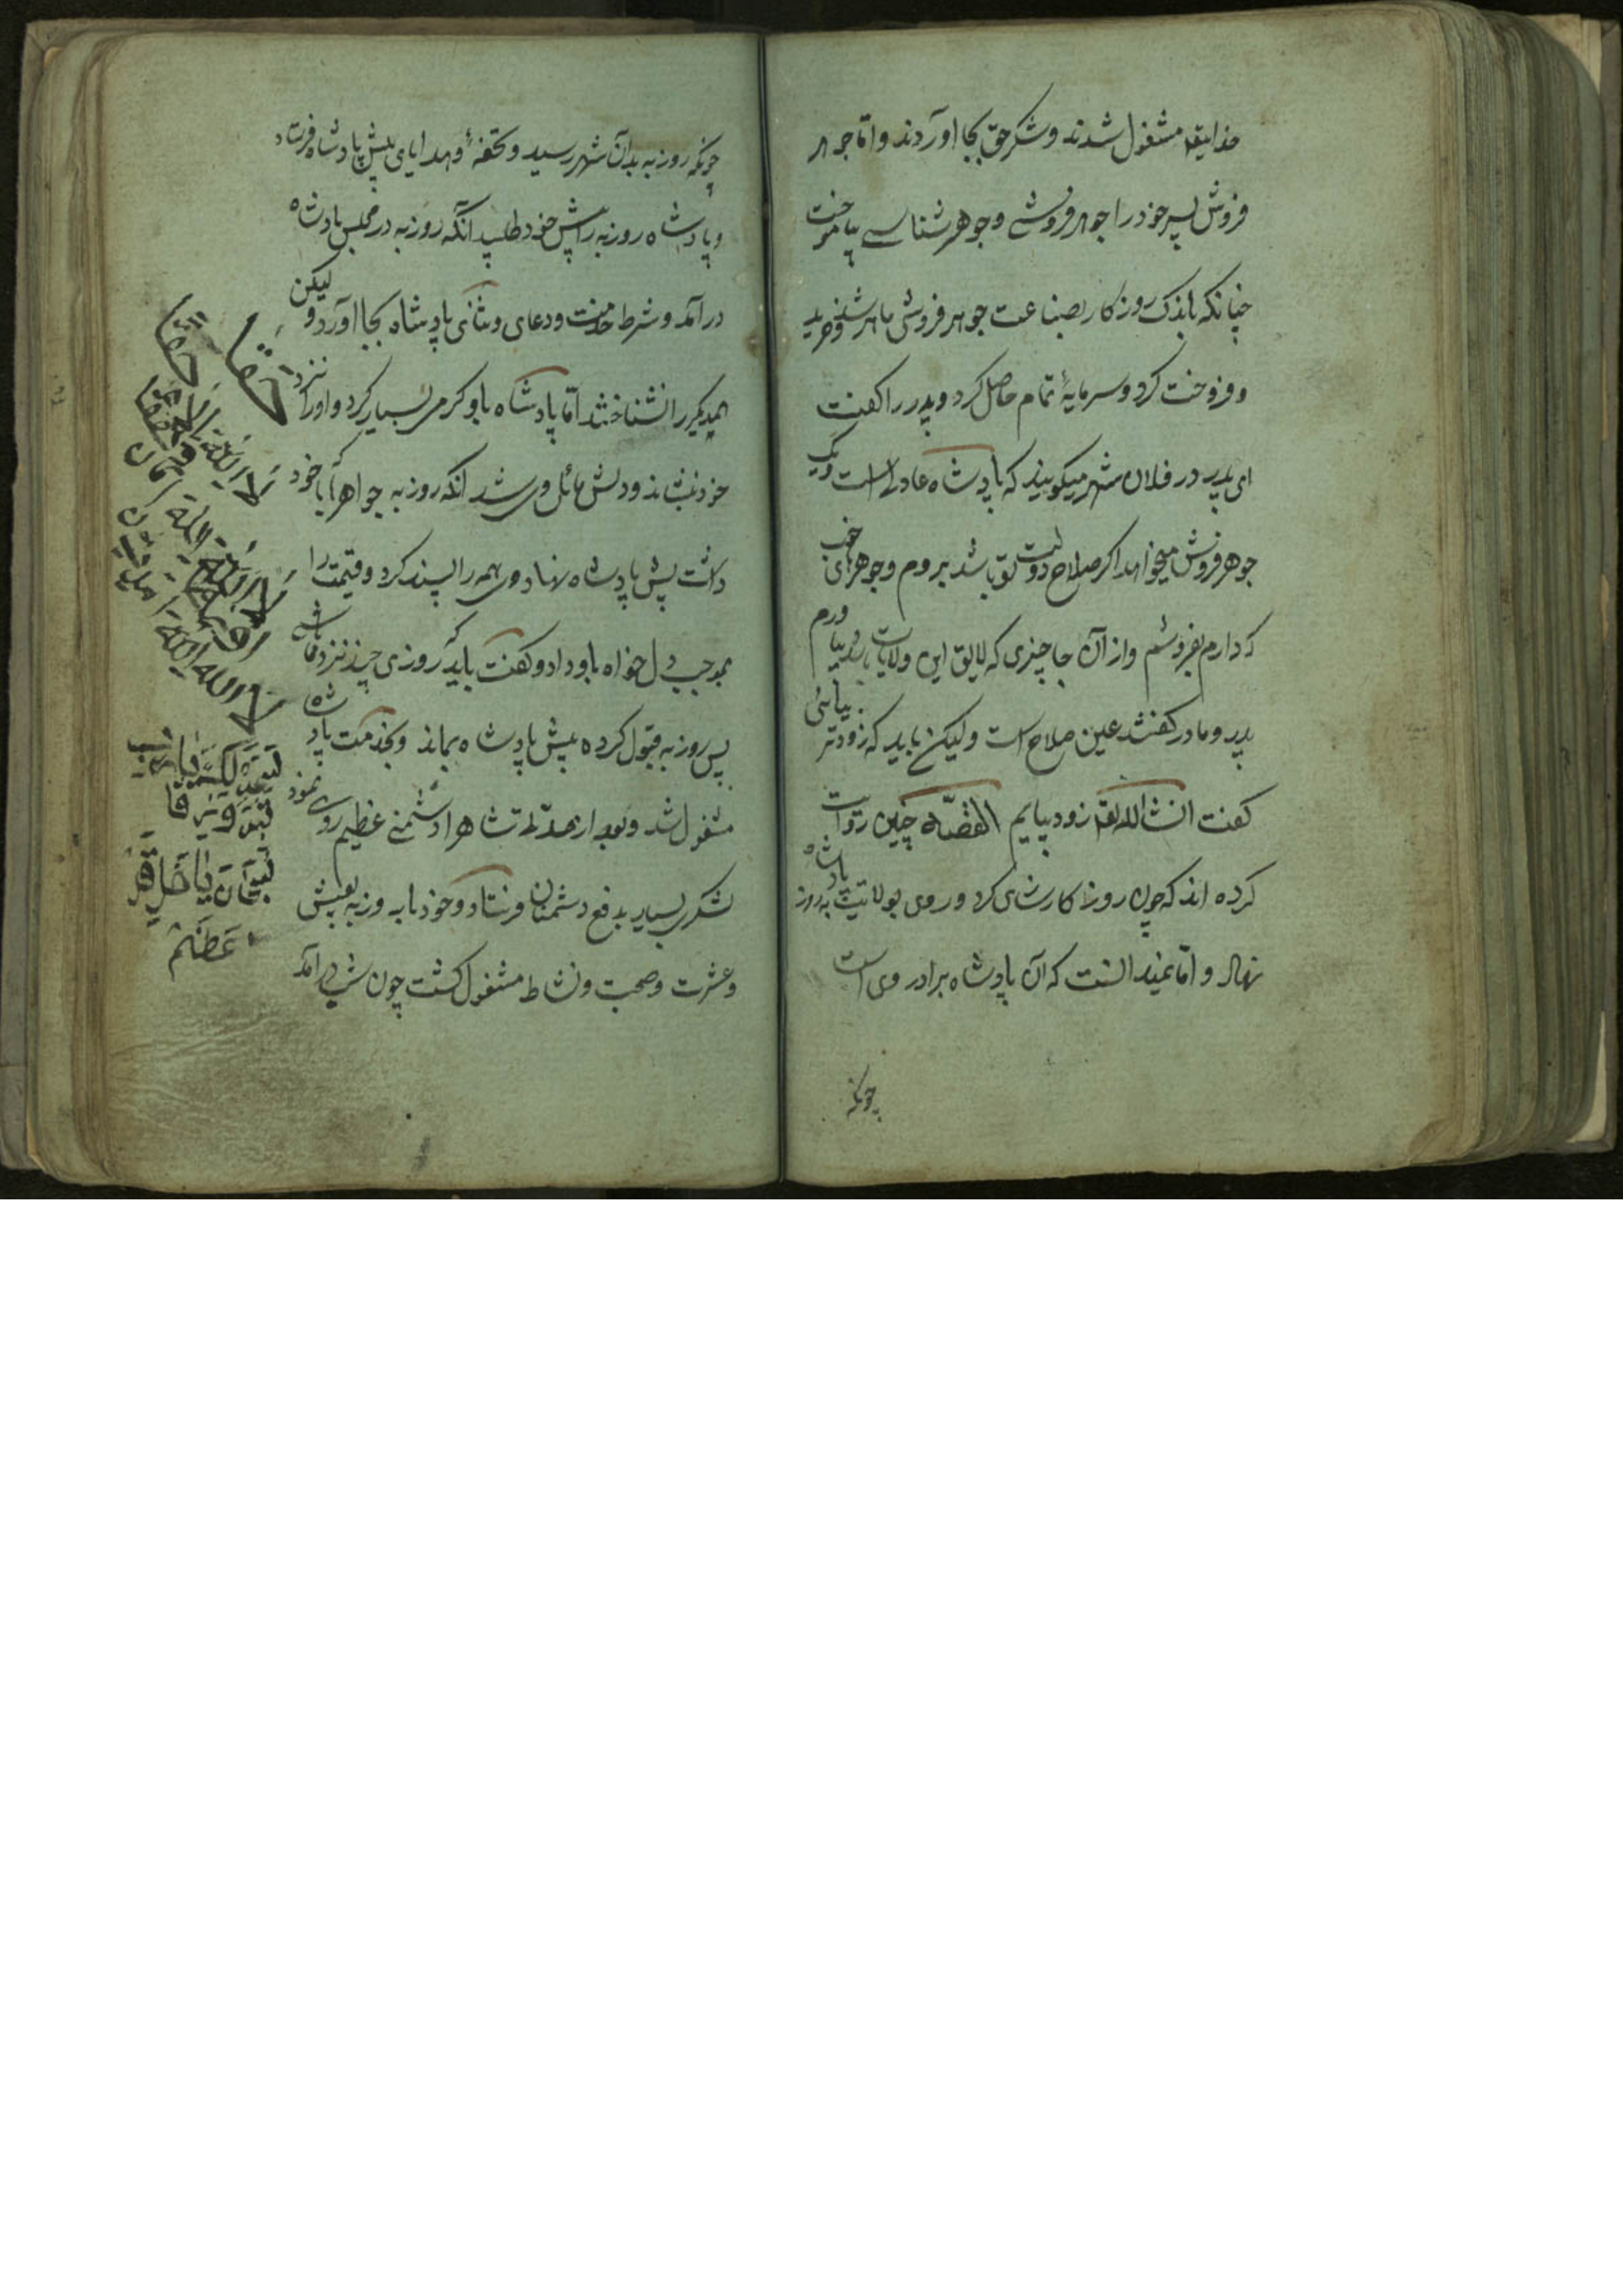 خدایتعالی مشغول شدند و شکر حق بجا اوردند و اما جوهر
فروش پسر خود را جوهر فروشی و جوهر شناسی بیاموخت
چنانکه باندک روزکار بصناعت جوهر فروشی ماهر شد و خرید
و فروخت کرد و سرمایهٔ تمام حاصل کرد و پدر را کفت
ای پدر در فلان شهر میکویند که پادشاه عادل است و نیک
جوهر فروش میخواهد اکر صلاح دولت تو باشد بروم و جوهرهای خوب
که دارم بفروشم و از آن جا چیزی که لایق این ولایت باشد بیاورم
پدر و مادر کفتند عین صلاح است ولیکن باید که زودتر بیائی
کفت انشاالله تعالی زود بیایم القصّه چنین روایت
کرده اند که چون روزبه کارسازی کرد و روی بولایت پادشاه روزبه
نهاد و اما نمیدانست که آن پادشاه برادر وی است
چونکه
چونکه روزبه بدان شهر رسید و تحفهٔ و هدایای پیش پادشاه فرستاد
و پادشاه روزبه را پیش خود طلبید آنکه روزبه در مجلس پادشاه
در آمد و شرط خدمت و دعای و ثنای پادشاه بجا اورد و لیکن
همدیکر را نشناختند اما پادشاه باو کرمی بسیار کرد و او را نزد
خود نشاند و دلش مائل وی شد آنکه روزبه جواهر که با خود
داشت پیش پادشاه نهاد وی همه را پسند کرد و قیمت را
بموجب دل خواه باو داد و کفت باید که روزی چند نزد ما باشی
پس روزبه قبول کرده پیش پادشاه بماند و بخدمت پادشاه
مشغول شد و بعد از مدتی شاه را دشمنی عظیم روی نمود
لشکری بسیار بدفع دشمنان فرستاد و خود با روزبه بعیش
و عشرت و صحبت و نشاط مشغول کشت چون شب درآمد
حقا
حقا
لا اله الا الله
لا اله الا الله
لا اله الا الله